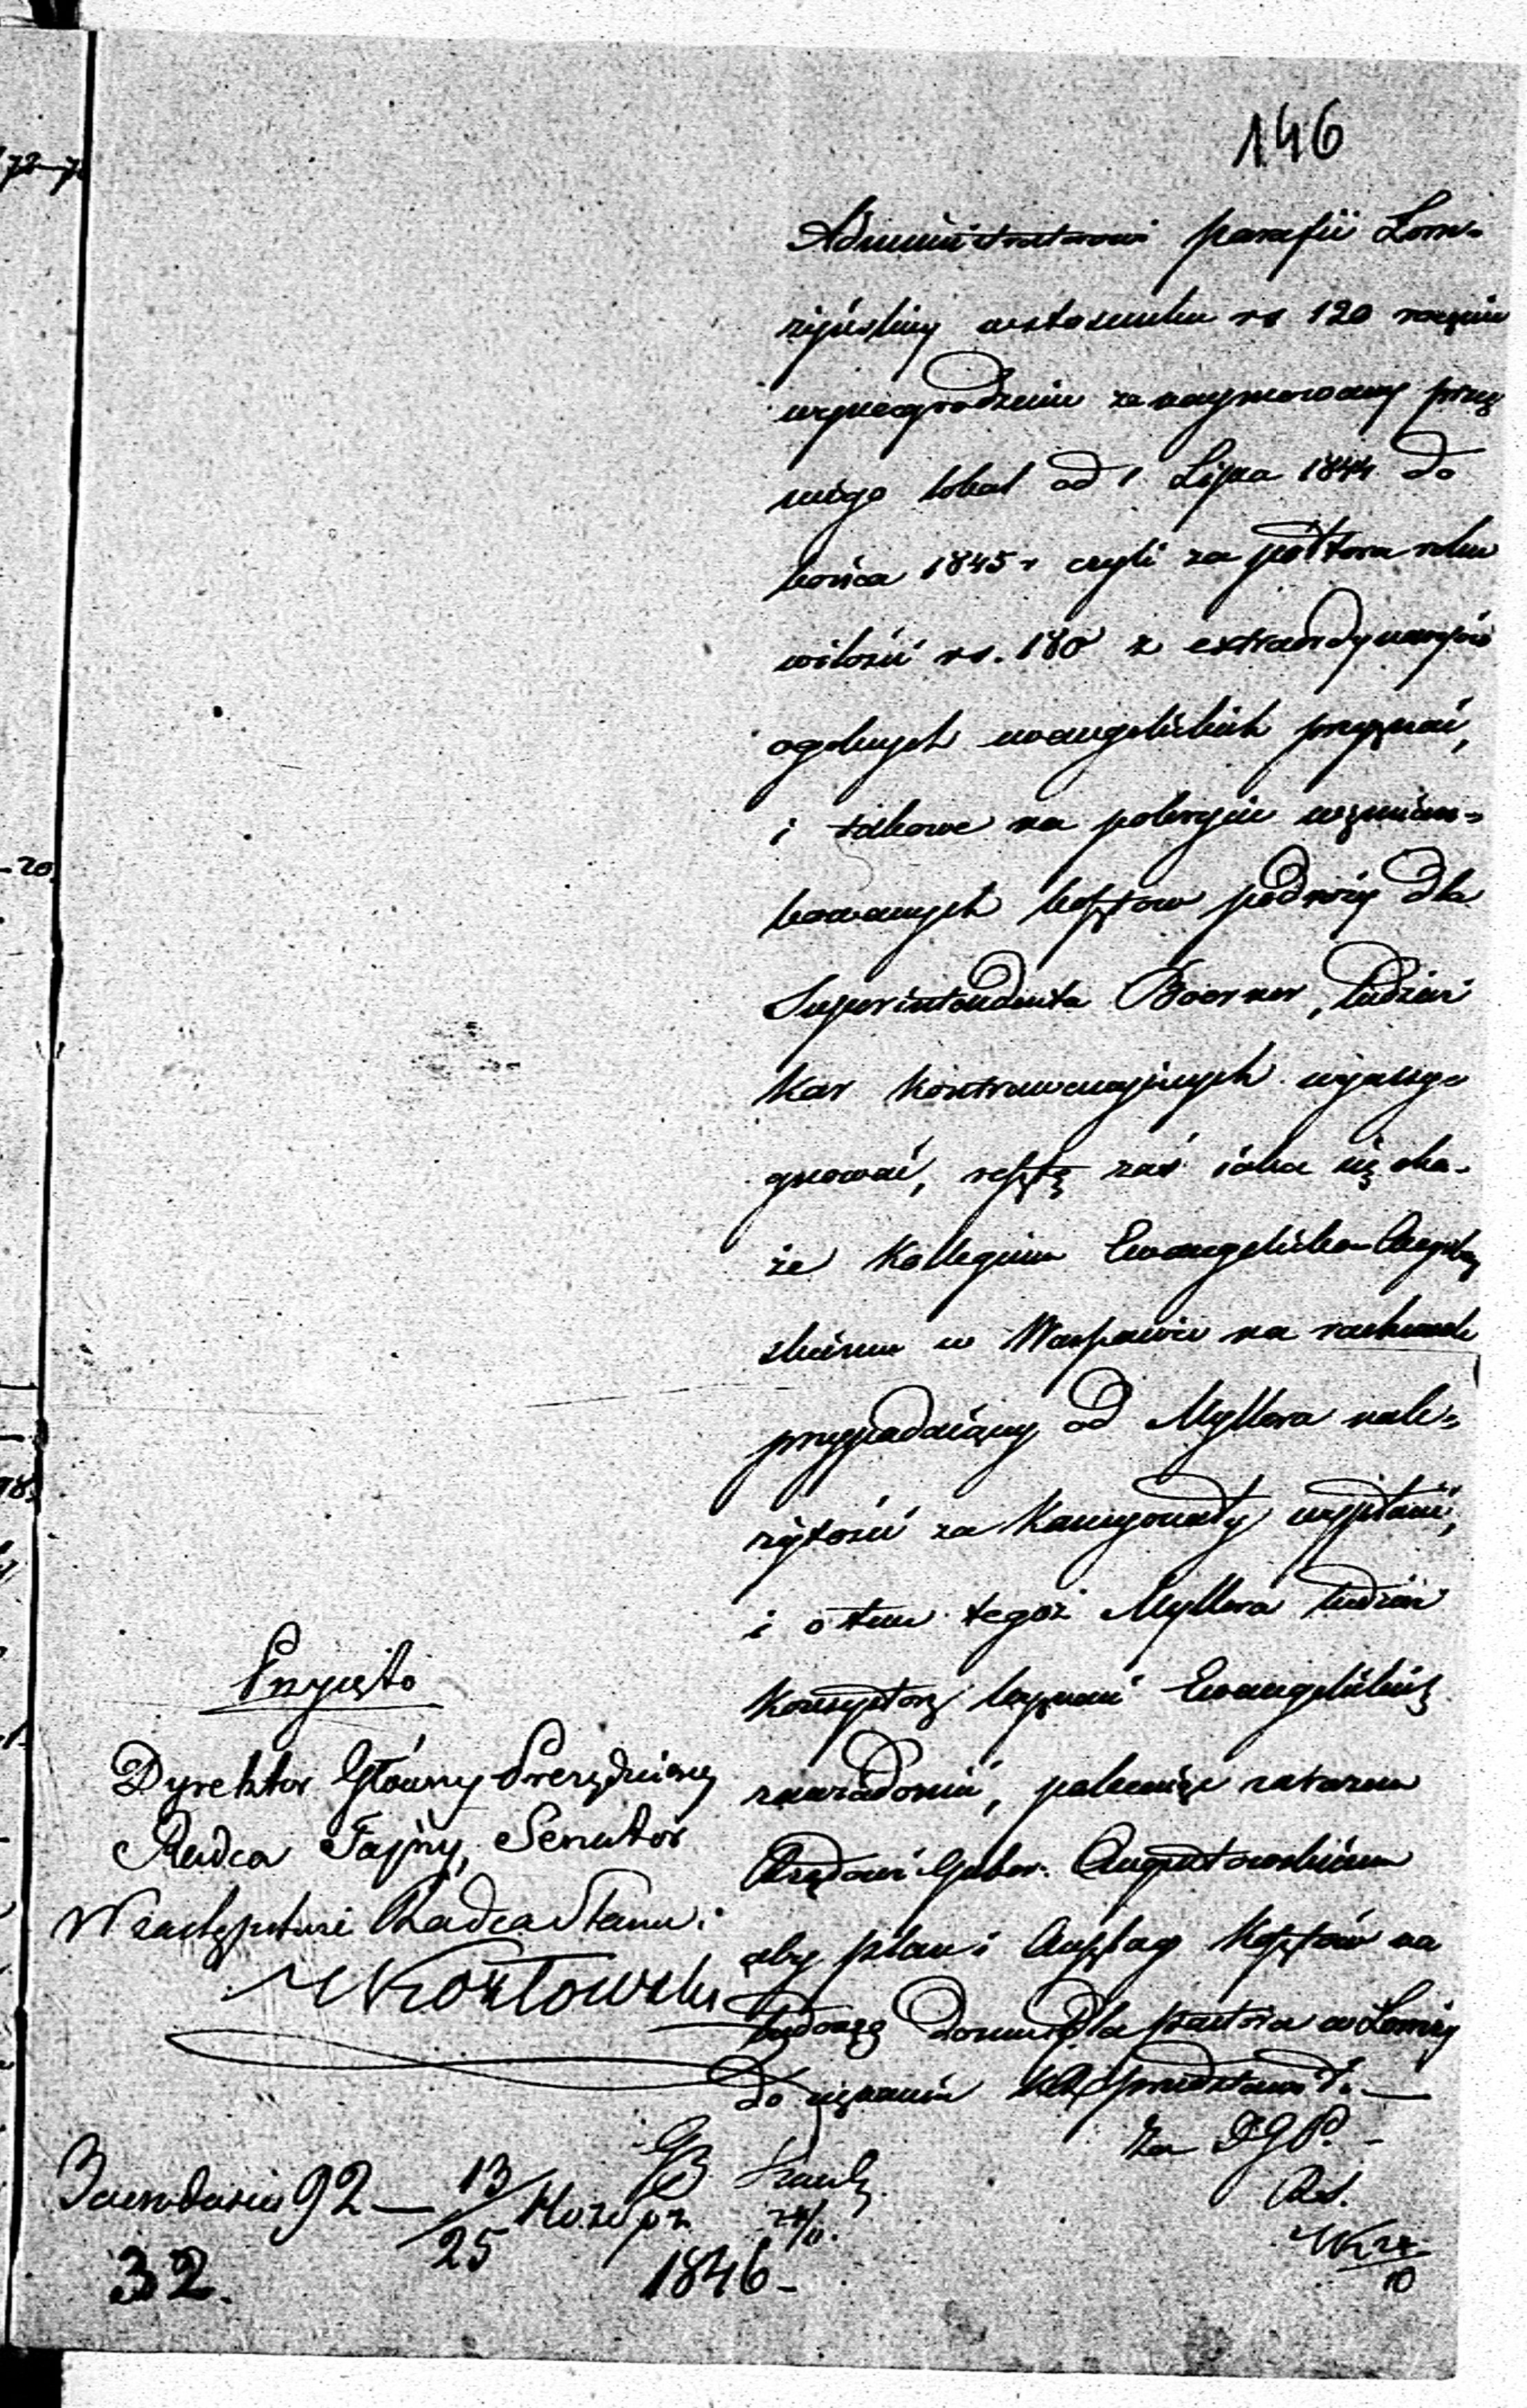 146
Administratorowi parafii Łom-
żyńskiey w stosunku rs 120 rocznie
wynagrodzenia za naymowany przez
niego lokal od 1 Lipca 1844 do
końca 1845 r czyli za półtora roku
wilości rs. 180 z extraordynaryów
ogólnych ewangelickich przyznać,
i takowe na pokrycie wzmian-
kowanych kosztow podróży dla
Superintendenta Boerner, tudzież
kar kontrawencyjnych wyassy-
gnować, resztę zaś iaka się oka-
że Kollegium Ewangelicko-Augsbur
skiemu w Warszawie na rachunek
przypadaiącey od Myllera nale-
żytości za Kamponaty wypłacić,
i o tem tegoż Myllera tudzież
Konsystorz wyznań Ewangelickich
zawiadomić, polecaiąc zarazem
Rządowi Guber. Augustowskiemu
aby plan i Anszlag kosztów na
budowę domu dla pastora w Łomży
do uznania KR przedstawił. —
Za D G P. -
Rd.
10
Przyjęto
Dyrektor Główny Prezyduiący
Radca Tajny, Senator
W zastępstwie Radca Stanu.
Kozłowski
92 — 13/25
32.
1846 -
72-7
-20